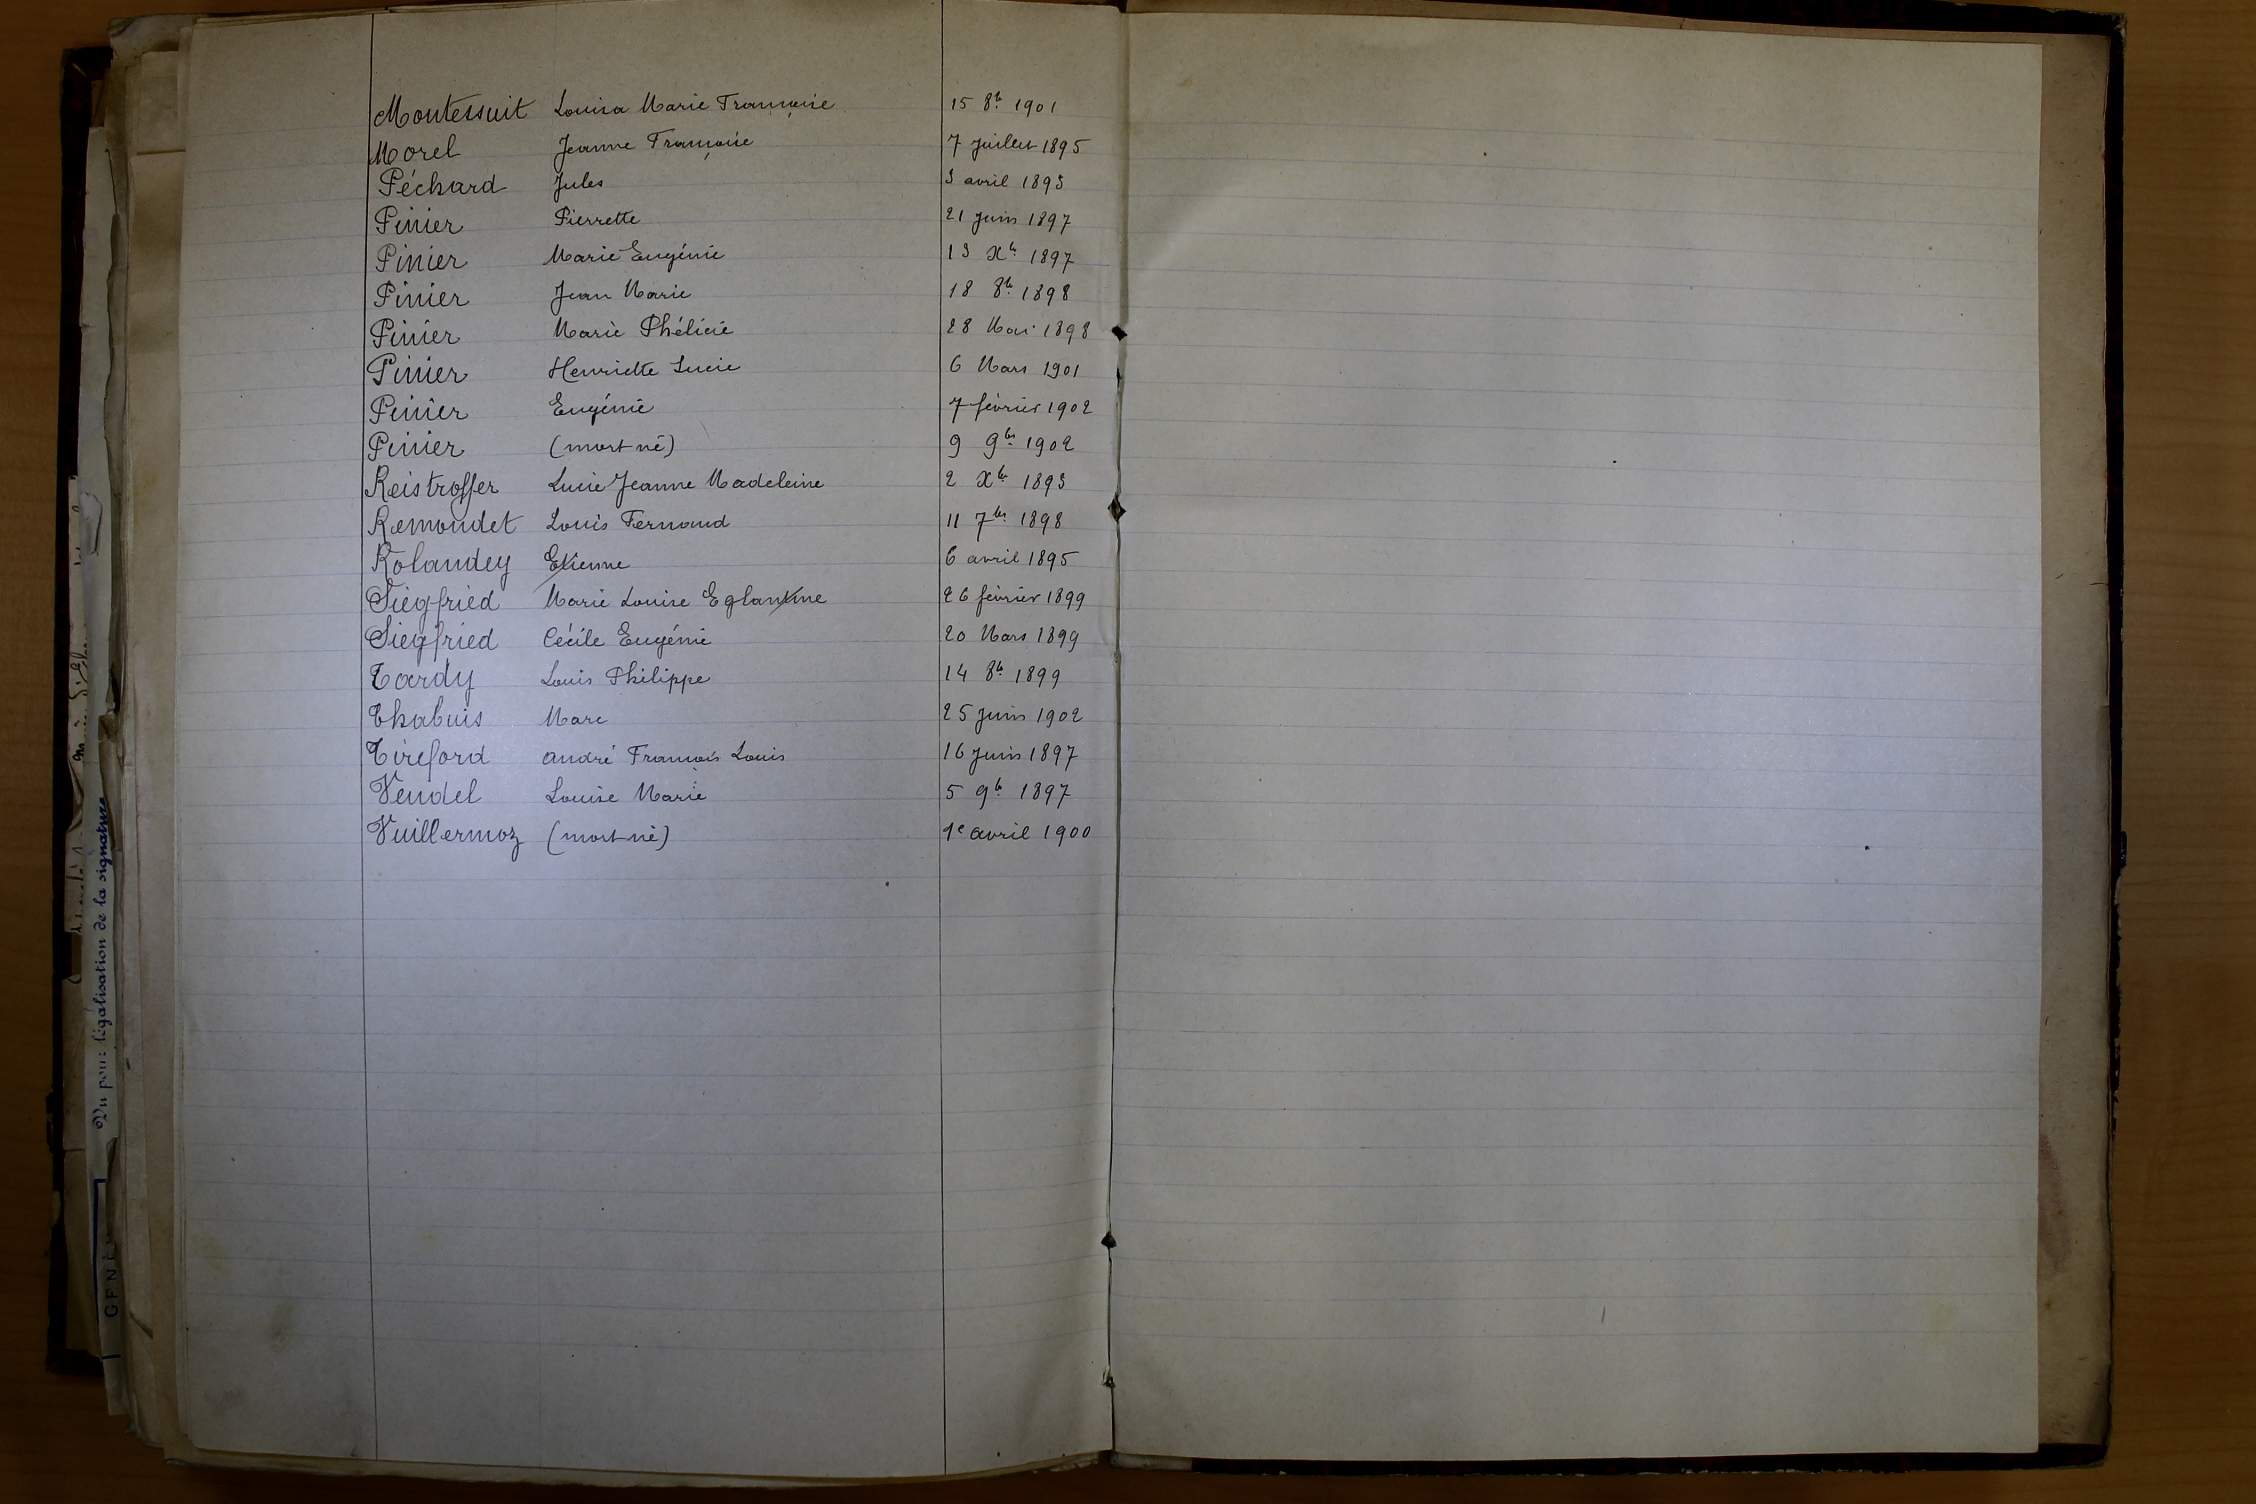 Montessuit Louisa Marie Françoise 15 8b. 1901
Morel Jeanne Françoise 7 juillet 1895
Péchard Jules 3 avril 1893
Pinier Pierrette 21 juin 1897
Pinier Marie Eugénie 13 Xb. 1897
Pinier Jean Marie 18 8b. 1898
Pinier Marie Phélicie 28 Mai 1898
Pinier Henriette Lucie 6 Mars 1901
Pinier Eugénie 7 février 1902
Pinier (mort né) 9 9bre 1902
Reistroffer Lucie Jeanne Madeleine 2 Xbr 1893
Remondet Louis Fernand 11 7bre 1898
Rolandey Etienne 6 avril 1895
Siegfried Marie Louise Eglantine 26 février 1899
Siegfried Cécile Eugénie 20 Mars 1899
Tardy Louis Philippe 14 8b. 1899
Thabuis Marc 25 juin 1902
Tireford André François Louis 16 juin 1897
Vendel Louise Marie 5 9b. 1897
Vuillermoz (mort né) 1e avril 1900
Vu pour légalisation de la signature